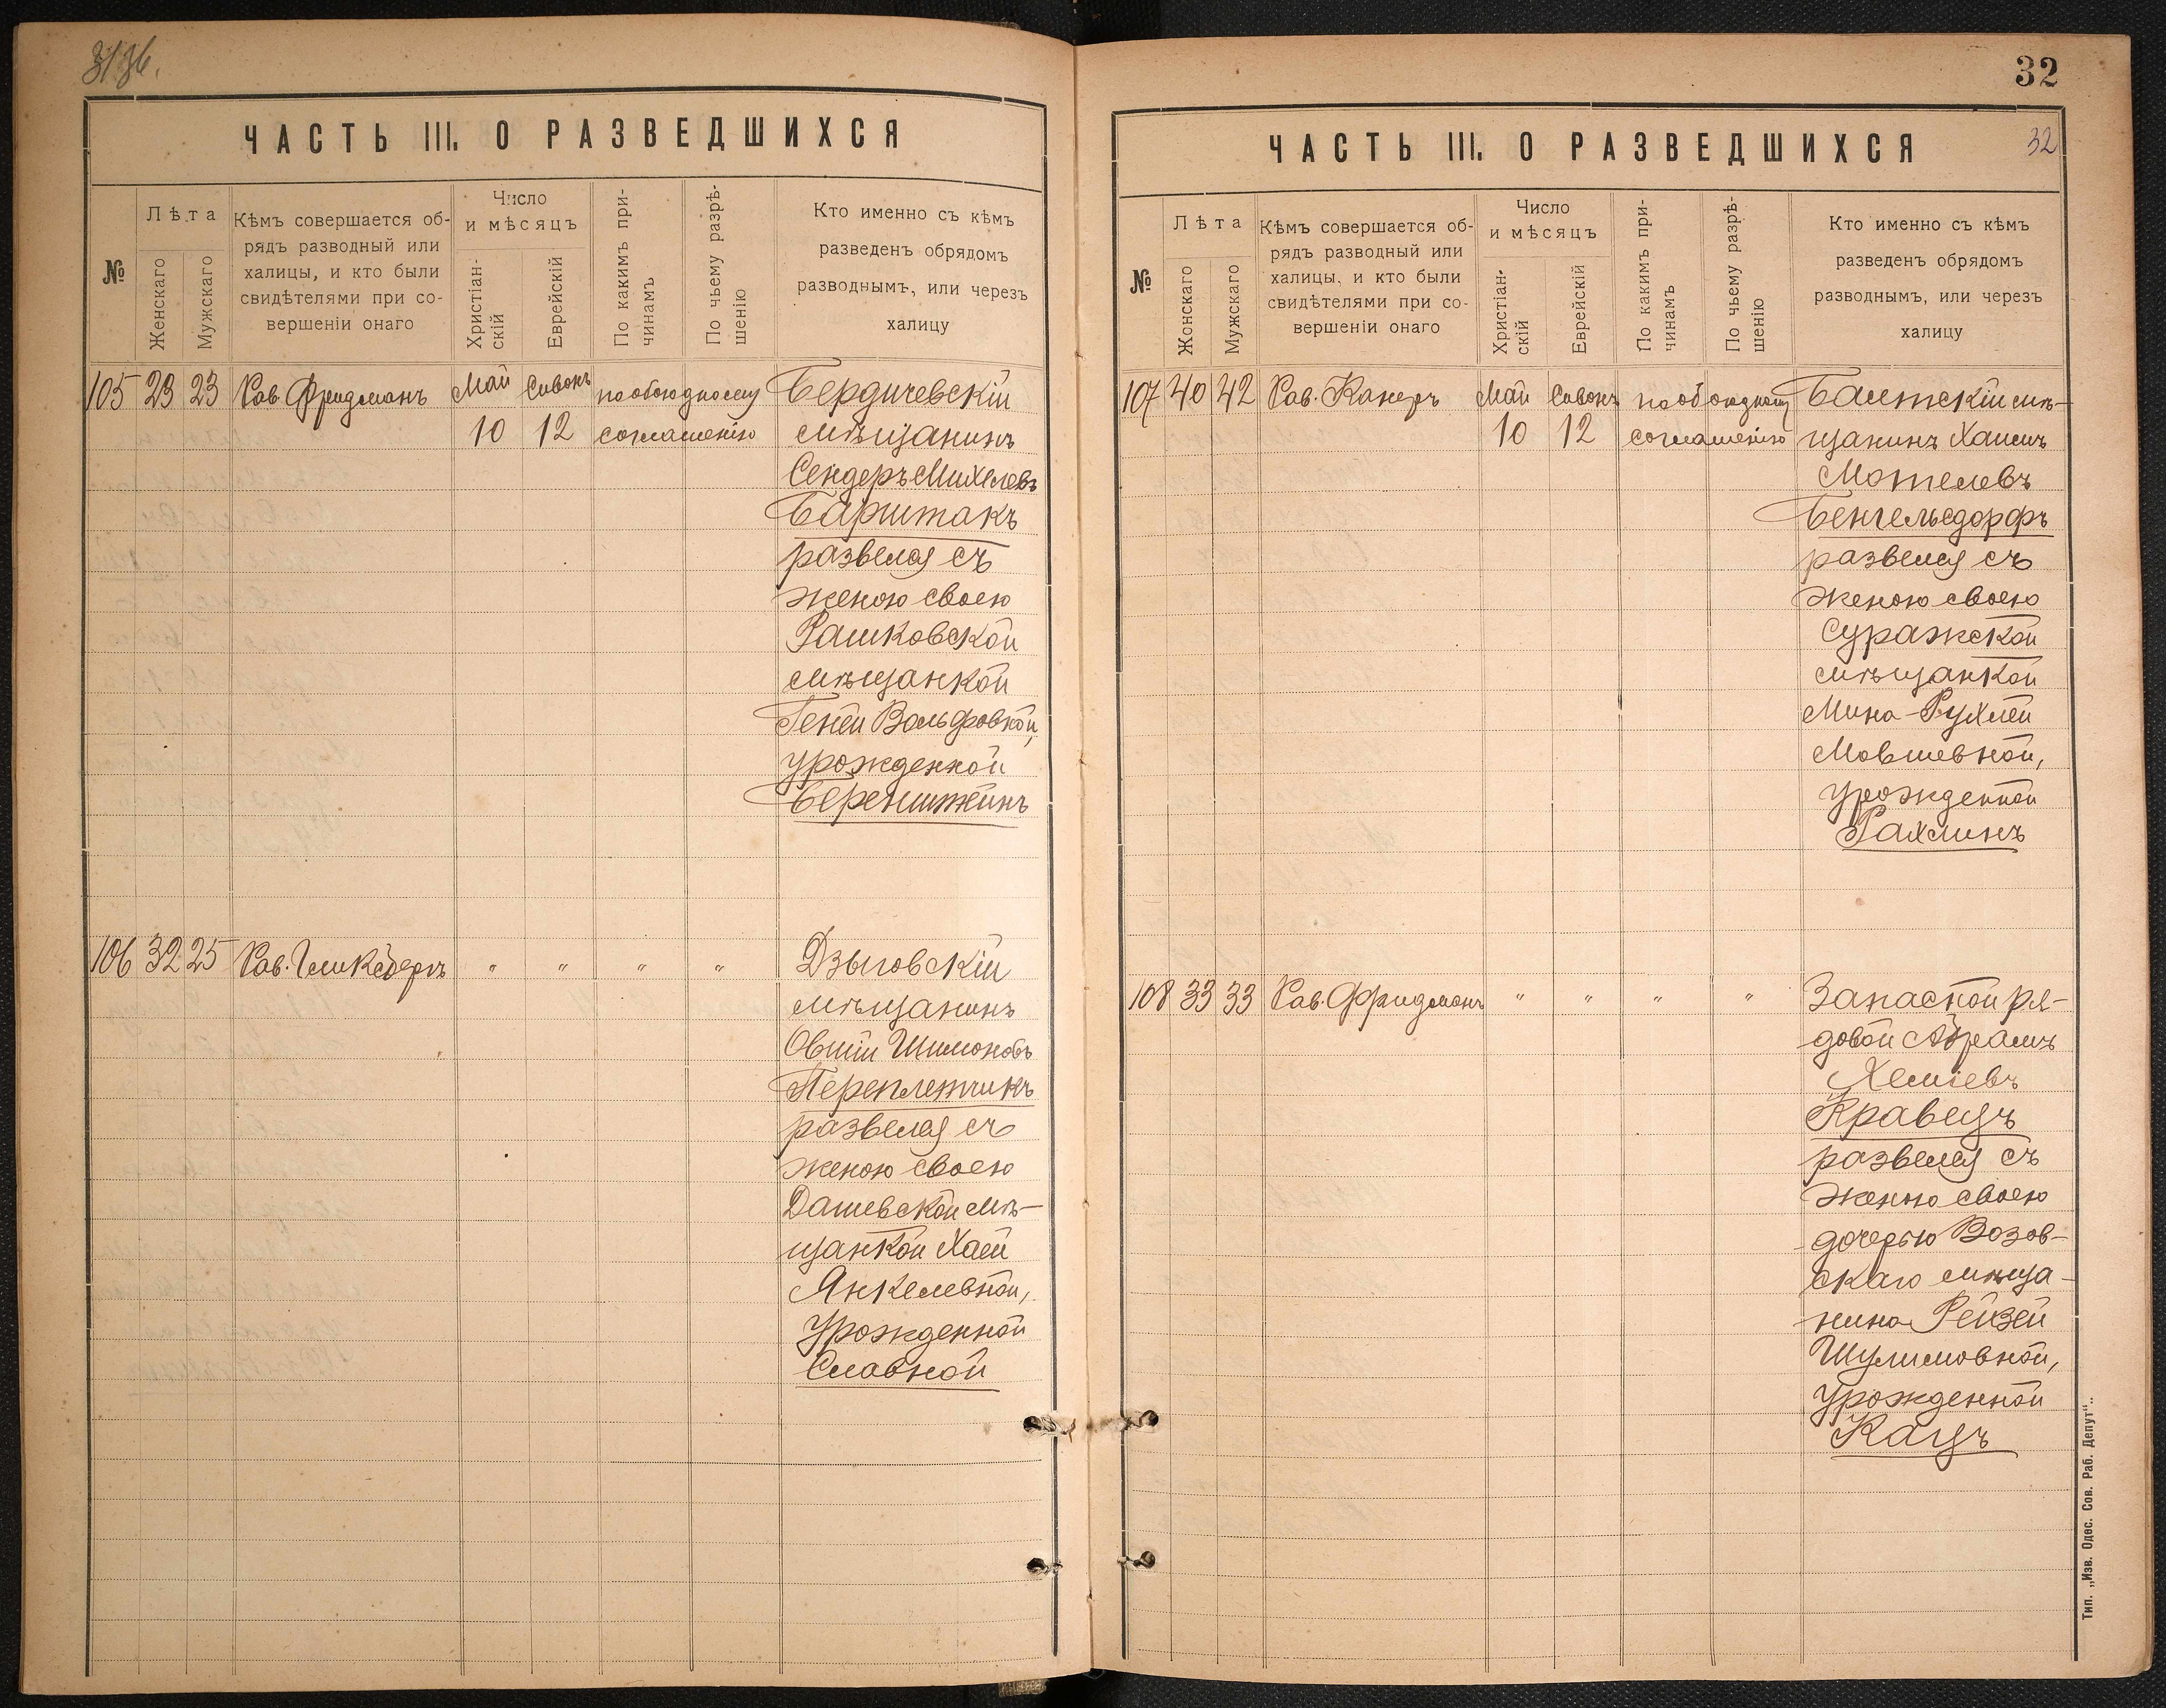 3136.
ЧАСТЬ III. О РАЗВЕДШИХСЯ
№
Лѣта
Женскаго
Мужскаго
Кѣмъ совершается об-
рядъ разводный или
халицы, и кто были
свидѣтелями при со-
вершеніи онаго
Число
и мѣсяцъ
Христіан-
скій
Еврейскій
По какимъ при-
чинамъ
По чьему разрѣ-
шенію
Кто именно съ кѣмъ
разведенъ обрядомъ
разводнымъ, или черезъ
халицу
105 23 23 Рав. Фридманъ Май Сивонъ по обоюдному Бердичевскій
10 12 соглашенію мѣщанинъ
Сендеръ Михелевъ
Барштакъ
развелся съ
женою своею
Рашковской
мѣщанкой
Геней Вольфовной,
урожденной
Беренштейнъ
106 32 25 Рав. " " " " Дзыговскій
мѣщанинъ
Овшій Шимоновъ
Переплетчикъ
развелся съ
женою своею
Дашевской мѣ-
щанкой Хаей
Янкелевной,
урожденной
Славной
32
ЧАСТЬ III. О РАЗВЕДШИХСЯ
32
№
Лѣта
Жонскаго
Мужскаго
Кѣмъ совершается об-
рядъ разводный или
халицы, и кто были
свидѣтелями при со-
вершеніи онаго
Число
и мѣсяцъ
Христіан-
скій
Еврейскій
По какимъ при-
чинамъ
По чьему разрѣ-
шенію
Кто именно съ кѣмъ
разведенъ обрядомъ
разводнымъ, или черезъ
халицу
107 40 42 Рав. Канеръ Май Сивонъ по обоюдному Балтскій мѣ-
10 12 соглашенію щанинъ Хаимъ
Мотелевъ
Бенгельсдорфъ
развелся съ
женою своею
Суражской
мѣщанкой
Мина-Рухлей
Мовшевной,
урожденной
Рахлинъ
108 33 33 Рав. Фридманъ " " " " Запасной ря-
довой Абрамъ
Хемшевъ
Кравецъ
развелся съ
женою своею
дочерью Возов-
скаго мѣща-
нина Рейзей
Шулимовной,
урожденной
Кацъ
Тип. „Изв. Одес. Сов. Раб. Депут“.